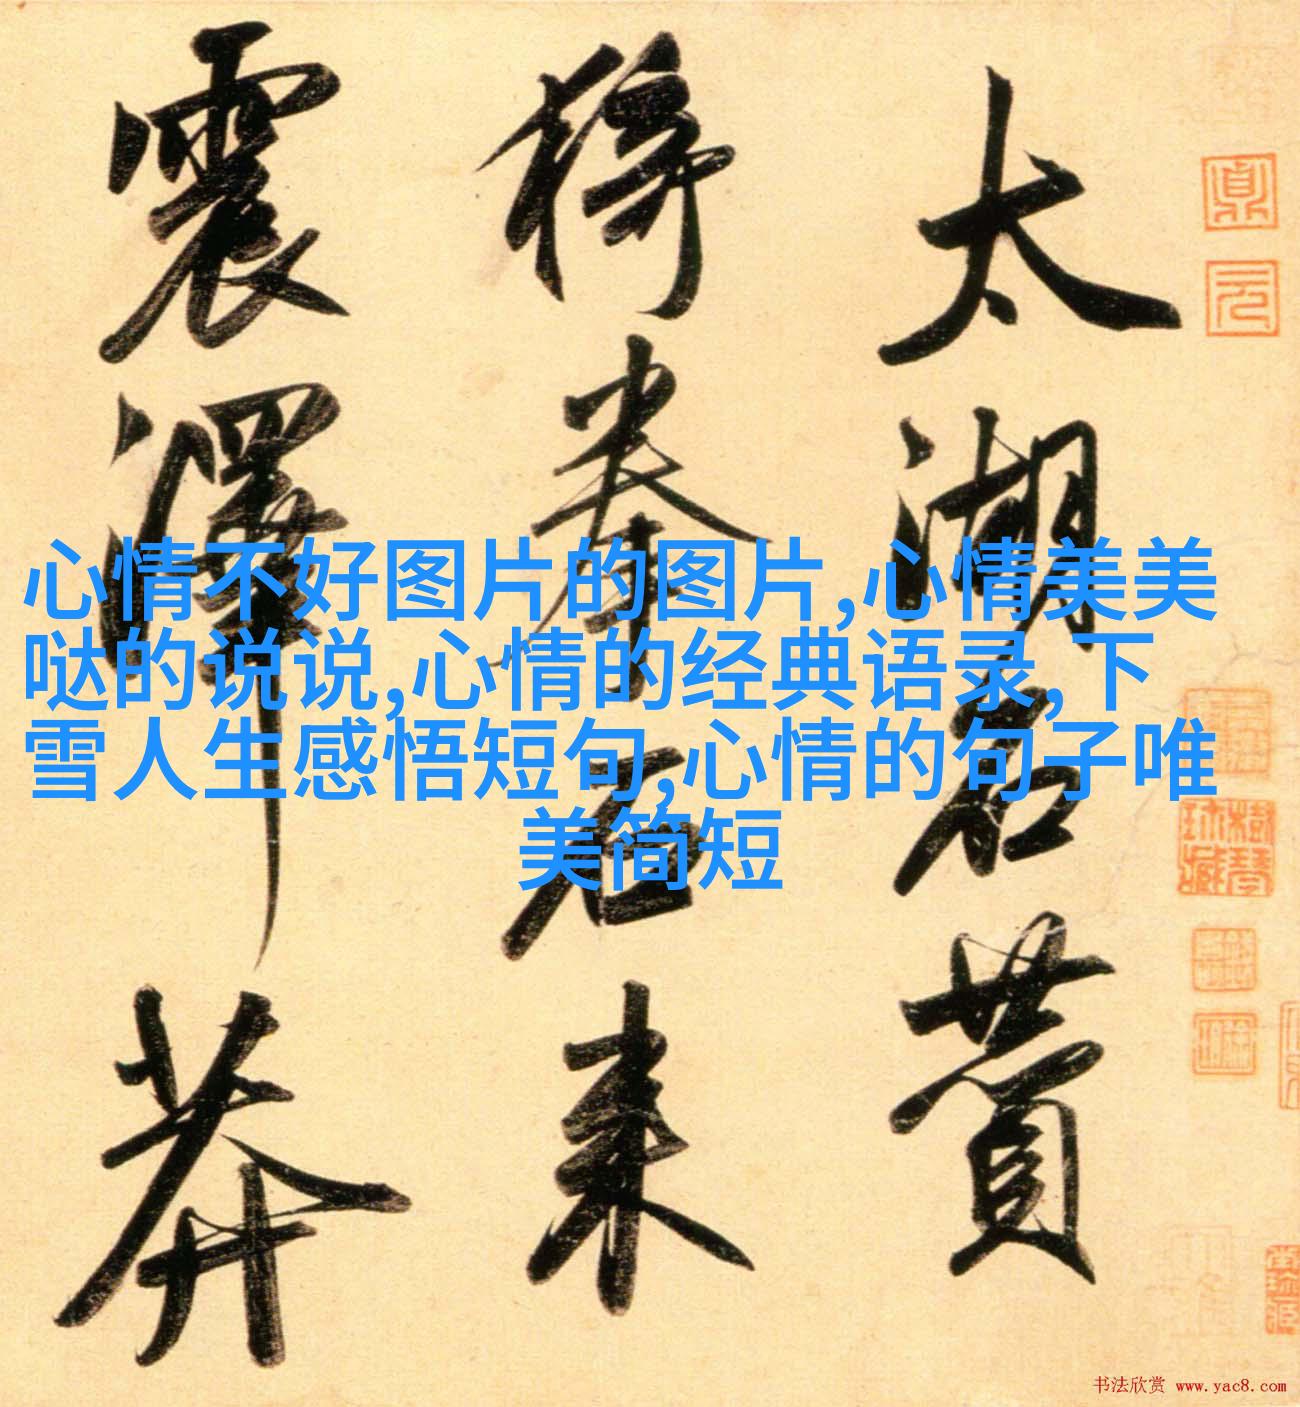 太湖石贊
猗拳石來
震澤莽
心情不好图片的图片,心情美美
哒的说说,心情的经典语录,下
雪人生感悟短句,心情的句子唯
美简短
书法欣赏 www.yac8.com